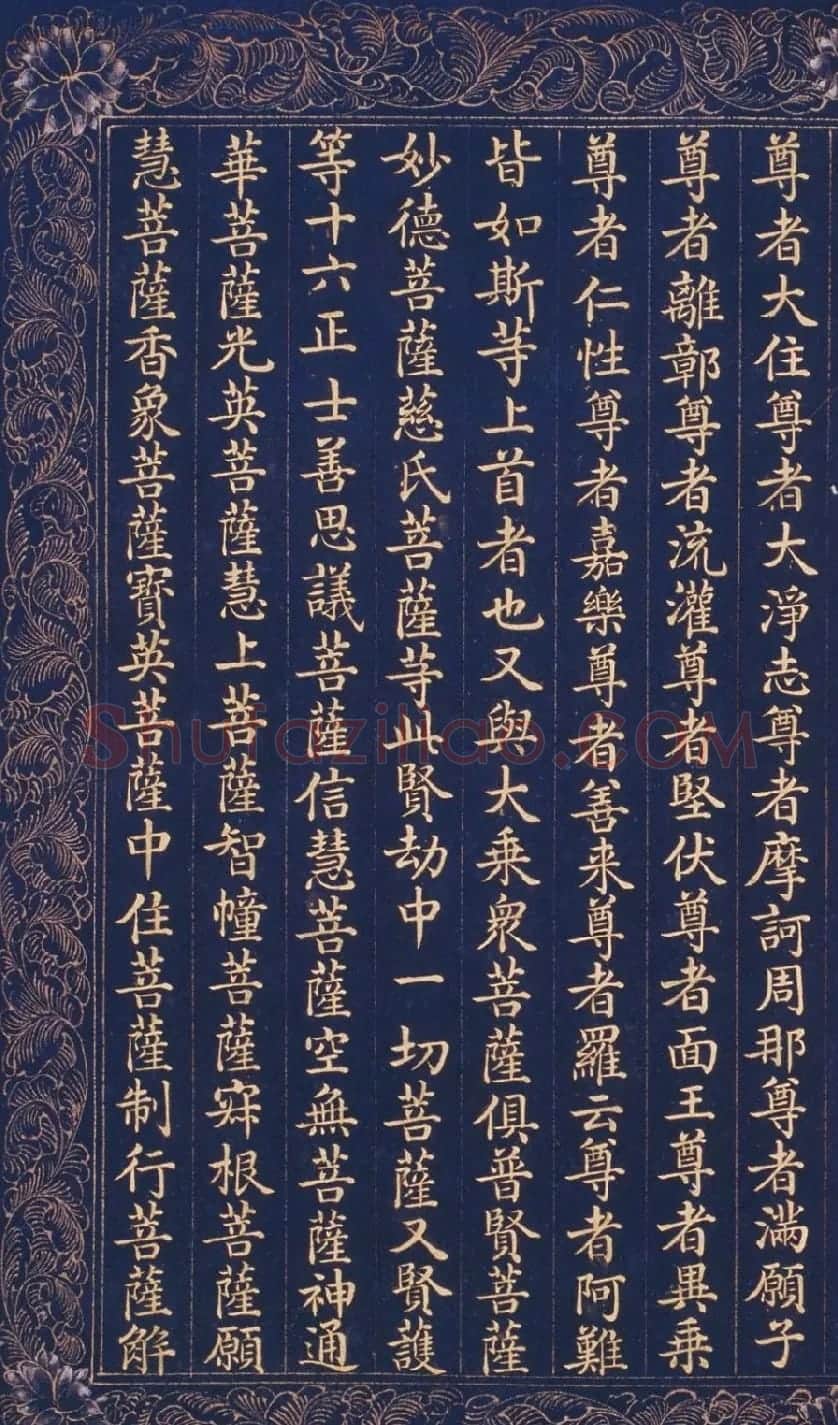 尊者大住尊者大淨志尊者摩訶周那尊者滿願子
尊者離鄣尊者流灌尊者堅伏尊者面王尊者異乗
尊者仁性尊者嘉樂尊者善来尊者羅云尊者阿難
皆如斯䓁上首者也又與大乗衆菩薩俱普賢菩薩
妙德菩薩慈氏菩薩䓁此賢劫中一切菩薩又賢護
等十六正士善思議菩薩信慧菩薩空無菩薩神通
華菩薩光英菩薩慧上菩薩智幢菩薩寂根菩薩願
慧菩薩香象菩薩寳英菩薩中住菩薩制行菩薩解
Shufaziliao.com